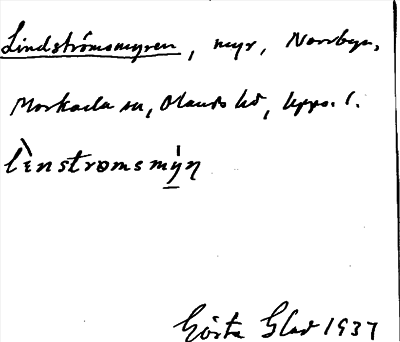 Lindströmsmyren, myr, Norrbyn,
Morkarla sn, Olands hd, Upps. l.
lènstromsmýn
Gösta Glad 1937